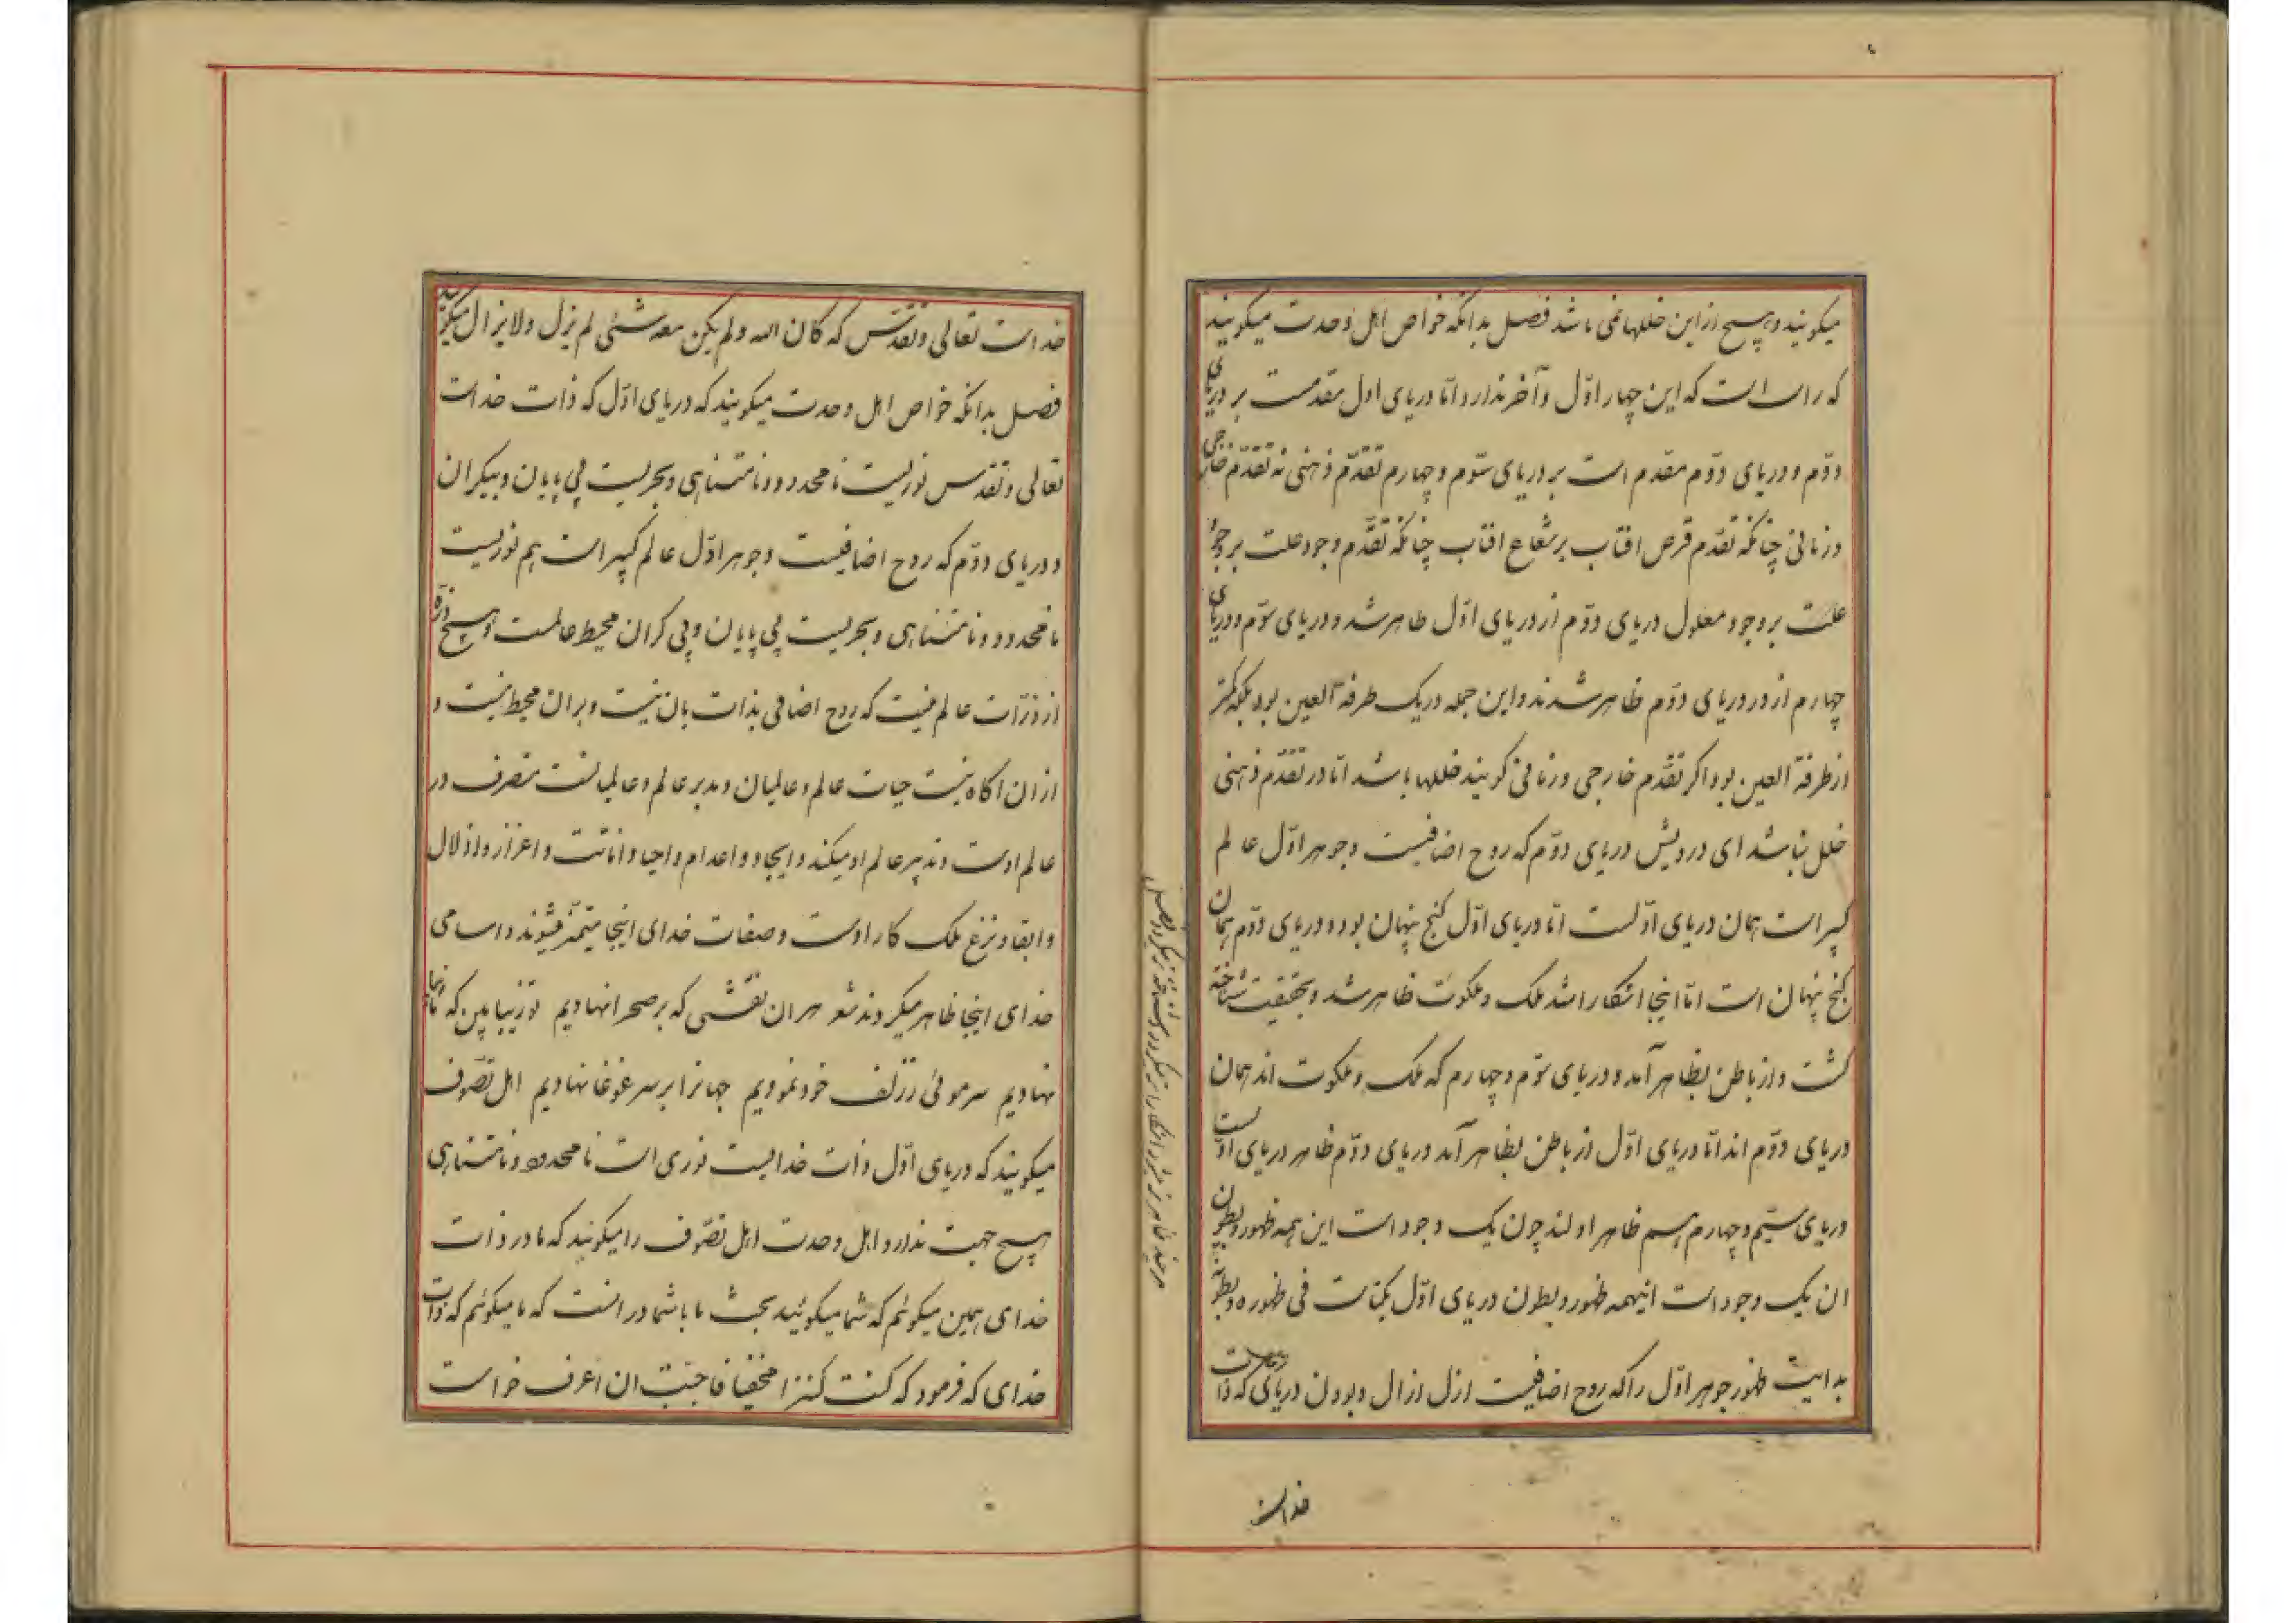 میکویند و هیچ ازین خللها نمی باشد فصل بدانکه خواص اهل وحدت میکویند
که راست است که این چهار اوّل و آخر ندارد امّا دریای اول مقدمست بر دریای
دوّم و دریای دوّم مقدم است بر دریای سوّم و چهارم تقدّم ذهنی نه تقدّم خارجی
و زمانی چنانکه تقدم قرص افتاب بر شعاع افتاب چنانکه تقدّم وجود علت بر وجود
علت بر وجود معلول دریای دوّم از دریای اوّل ظاهر شد و دریای سوّم و دریای
چهارم از دور دریای دوّم ظاهر شدند و این جمله در یک طرفة العین بود بلکه کمتر
از طرفة العین بود اکر تقدّم خارجی و زمانی کویند خللها باشد امّا در تقدّم ذهنی
خلل نباشد ای درویش دریای دوّم که روح اضافیست و جوهر اوّل عالم
کبیر است همان دریای اوّلست امّا دریای اوّل کنج پنهان بود و دریای دوّم همان
کنج پنهان است امّا اینجا اشکارا شد ملک و ملکوت ظاهر شد و بحقیقت شناخته
کشت و از باطن بظاهر آمد و دریای سوّم و چهارم که ملک و ملکوت اند همان
دریای دوّم اند امّا دریای اوّل از باطن بظاهر آمد دریای دوّم ظاهر دریای اوّلست
دریای سیّم و چهارم هم ظاهر اولند چون یک وجود است این همه ظهور و بطون
ان یک وجود است اینهمه ظهور و بطون دریای اوّل یکیّ است فی ظهوره و بطونه
بدایت ظهور جوهر اوّل را که روح اضافیست ازل ازال و بودن دریای که ذات
خداست
خداست تعالی و تقدّس که کان الله و لم یکن معه شیئ لم یزل و لا یزال میکویند
فصل بدانکه خواص اهل وحدت میکویند که دریای اوّل که ذات خداست
تعالی و تقدس نوریست نامحدود و نامتناهی و بحریست بی پایان و بیکران
و دریای دوّم که روح اضافیست و جوهر اوّل عالم کبیر است هم نوریست
نامحدود و نامتناهی و بحریست بی پایان و بی کران محیط عالمست و هیچ ذرّه
از ذرّات عالم نیست که روح اضافی بذات بان نیست و بران محیط نیست و
از ان اکاه نیست حیات عالم و عالمیان و مدبر عالم و عالمیانست متصرف در
عالم اوست و تدبیر عالم او میکند و ایجاد و اعدام و احیا و اماتت و اعزاز و اذلال
و ابقا و نزع ملک کار اوست و صفات خدای اینجا متمیّز میشوند و اسامی
خدای اینجا ظاهر میکردند شعر هر ان نقشی که بر صحرا نهادیم تو زیبا بین که ما زیبا
نهادیم سر موئی ز زلف خود نمودیم جهانرا بر سر غوغا نهادیم اهل تصوّف
میکویند که دریای اوّل ذات خدایست نوری است نامحدود و نامتناهی
هیچ جهت ندارد اهل وحدت اهل تصوّف را میکویند که ما در ذات
خدای همین میکوئم که شما میکوئید بحث ما با شما در انست که ما میکوئم که ذات
خدای که فرمود که کنت کنزا مخفیّا فاحببت ان اعرف خواست